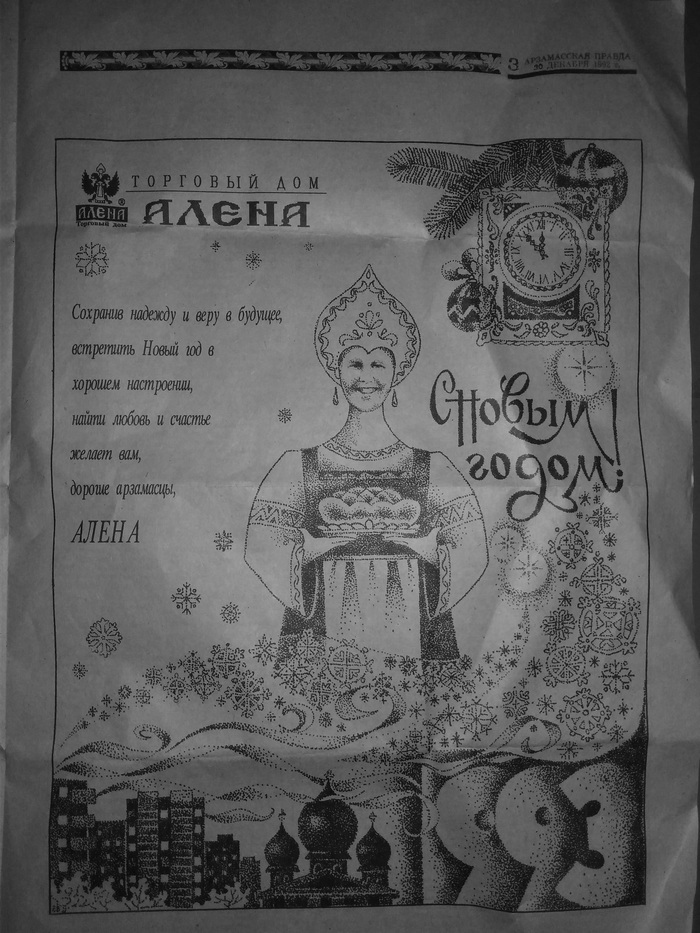 3 АРЗАМАССКАЯ ПРАВДА
30 ДЕКАБРЯ 1992 г.
ТОРГОВЫЙ ДОМ
АЛЕНА
АЛЕНА ®
Торговый дом
Сохранив надежду и веру в будущее,
встретить Новый год в
хорошем настроении,
найти любовь и счастье
желает вам,
дорогие арзамасцы,
АЛЕНА
С Новым
годом!
XII
1993